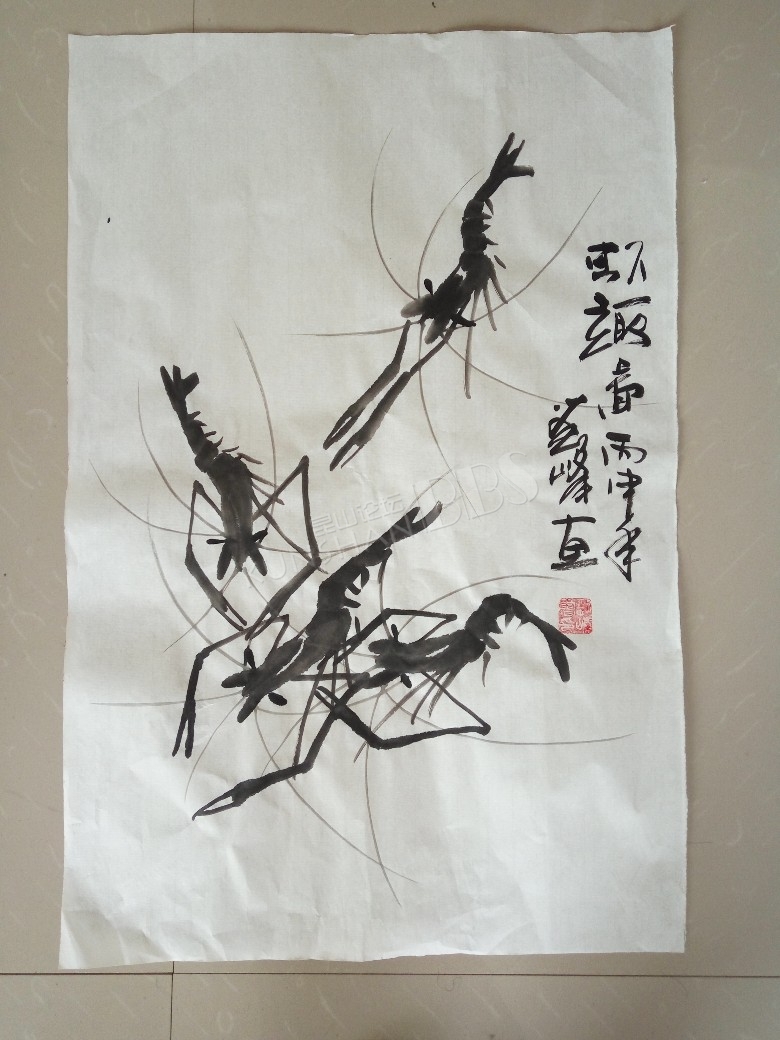 虾趣图丙申年
峰画
昆山论坛
KUNSHAN BBS